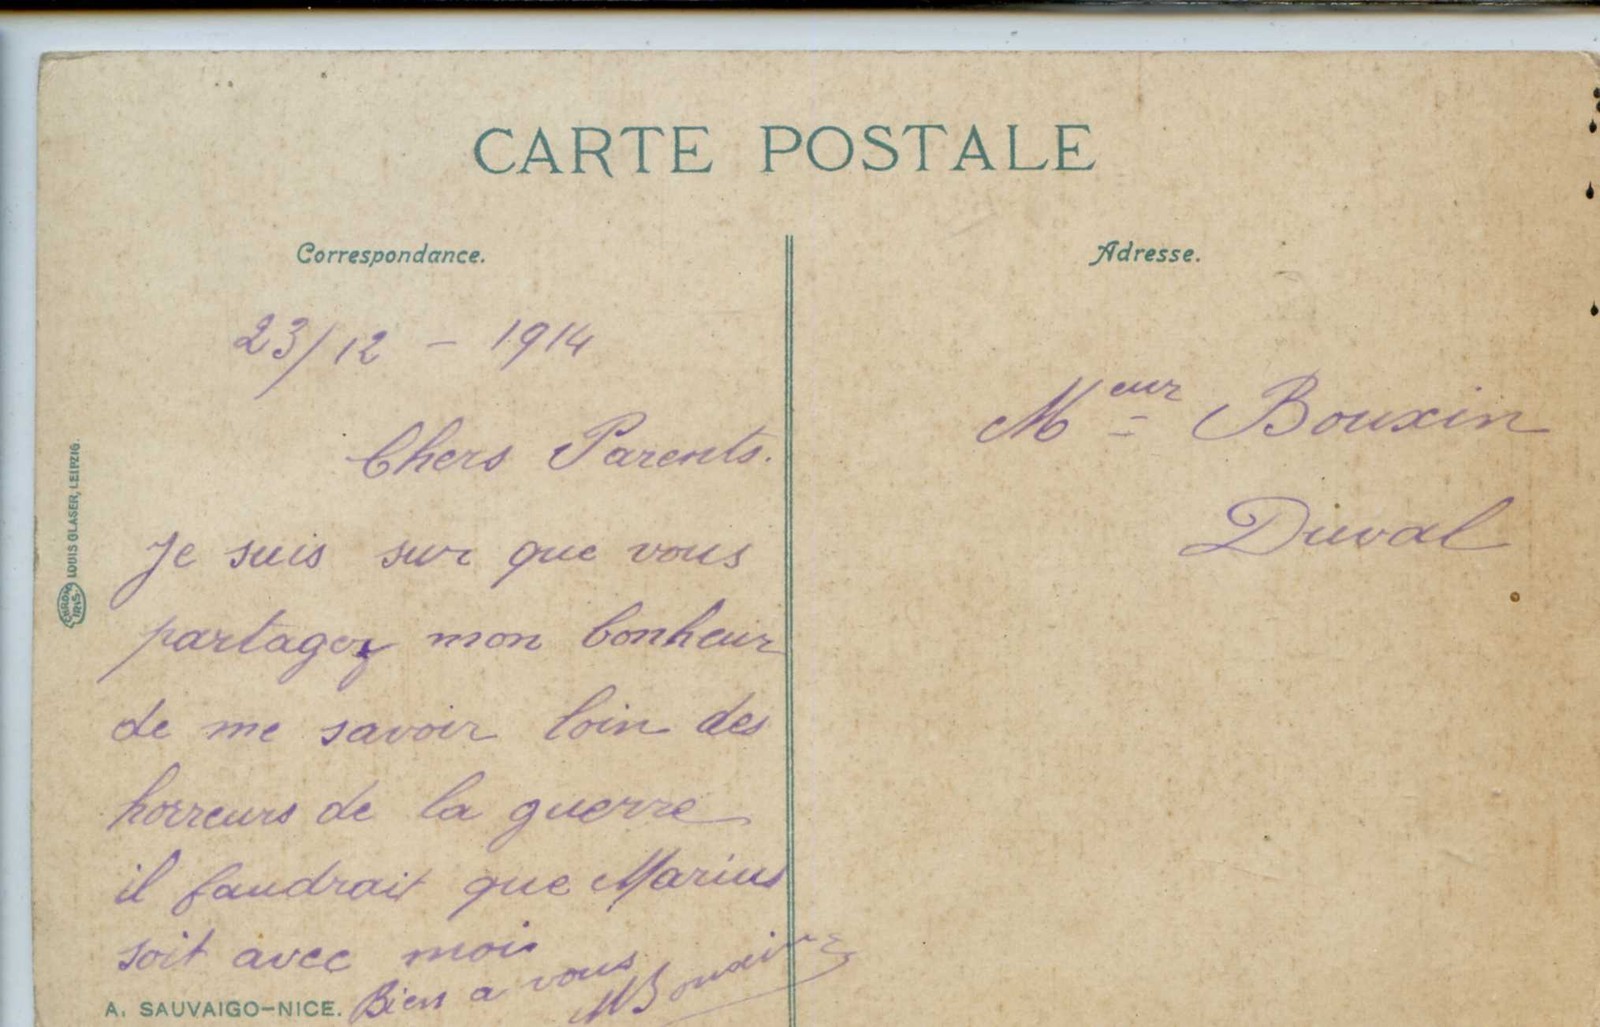 CARTE POSTALE
Correspondance.
23/12 - 1914
Chers Parents.
Je suis sur que vous
partagez mon bonheur
de me savoir loin des
horreurs de la guerre
il faudrait que Marius
soit avec moi
Bien a vous
A. SAUVAIGO-NICE.
LOUIS GLASER, LEIPZIG.
Adresse.
Meur Bouxin
Duval